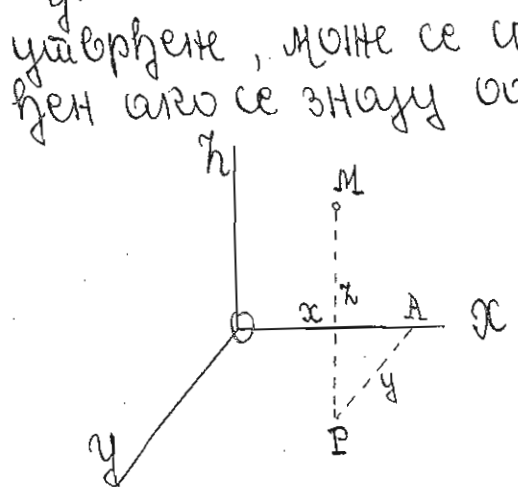 утврђене, може се
ђен ако се знају
z
M
x z A X
O
y
P
y